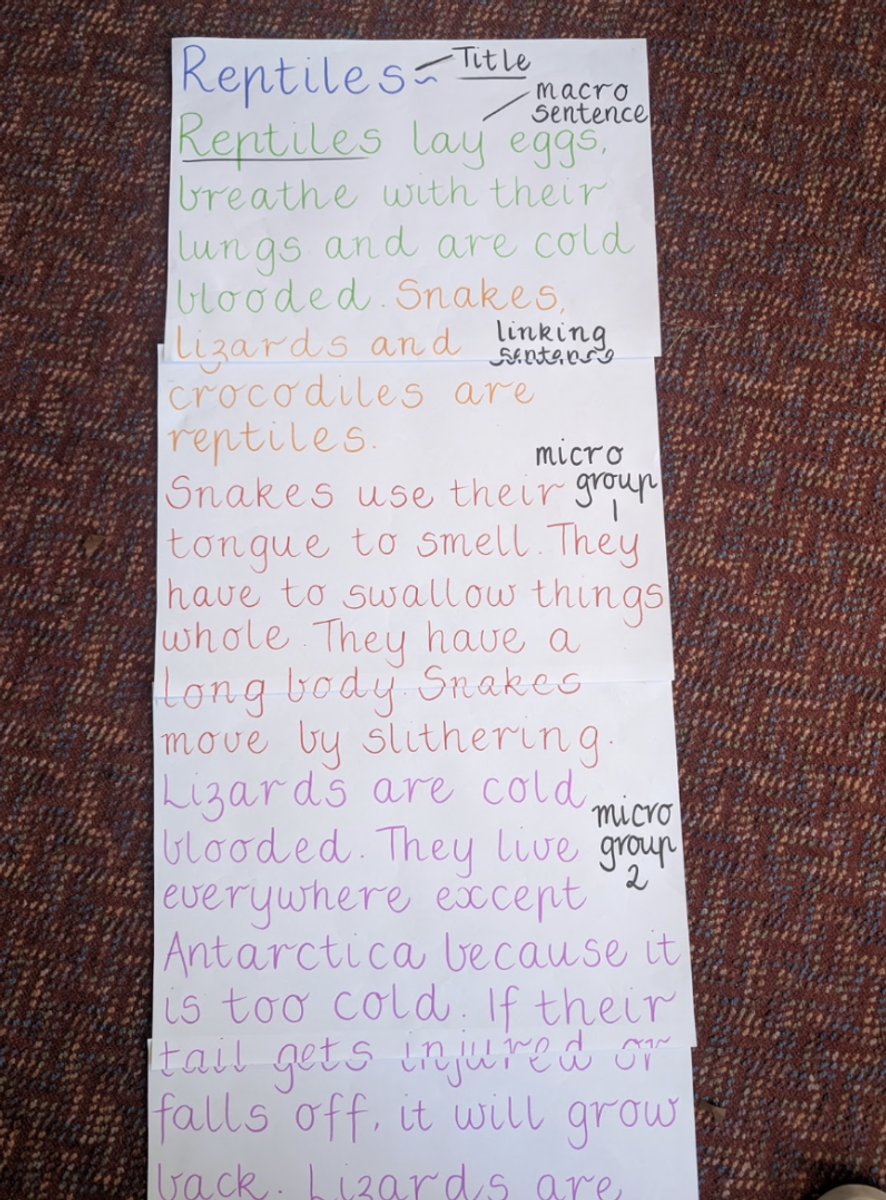 Reptiles - Title
macro
sentence
Reptiles lay eggs,
breathe with their
lungs and are cold
blooded. Snakes,
lizards and linking
sentence
crocodiles are
reptiles.
micro
Snakes use their group
1
tongue to smell. They
have to swallow things
whole. They have a
long body. Snakes
move by slithering.
Lizards are cold
micro
blooded. They live group
2
everywhere except
Antarctica because it
is too cold. If their
tail gets injured or
falls off, it will grow
back. Lizards are